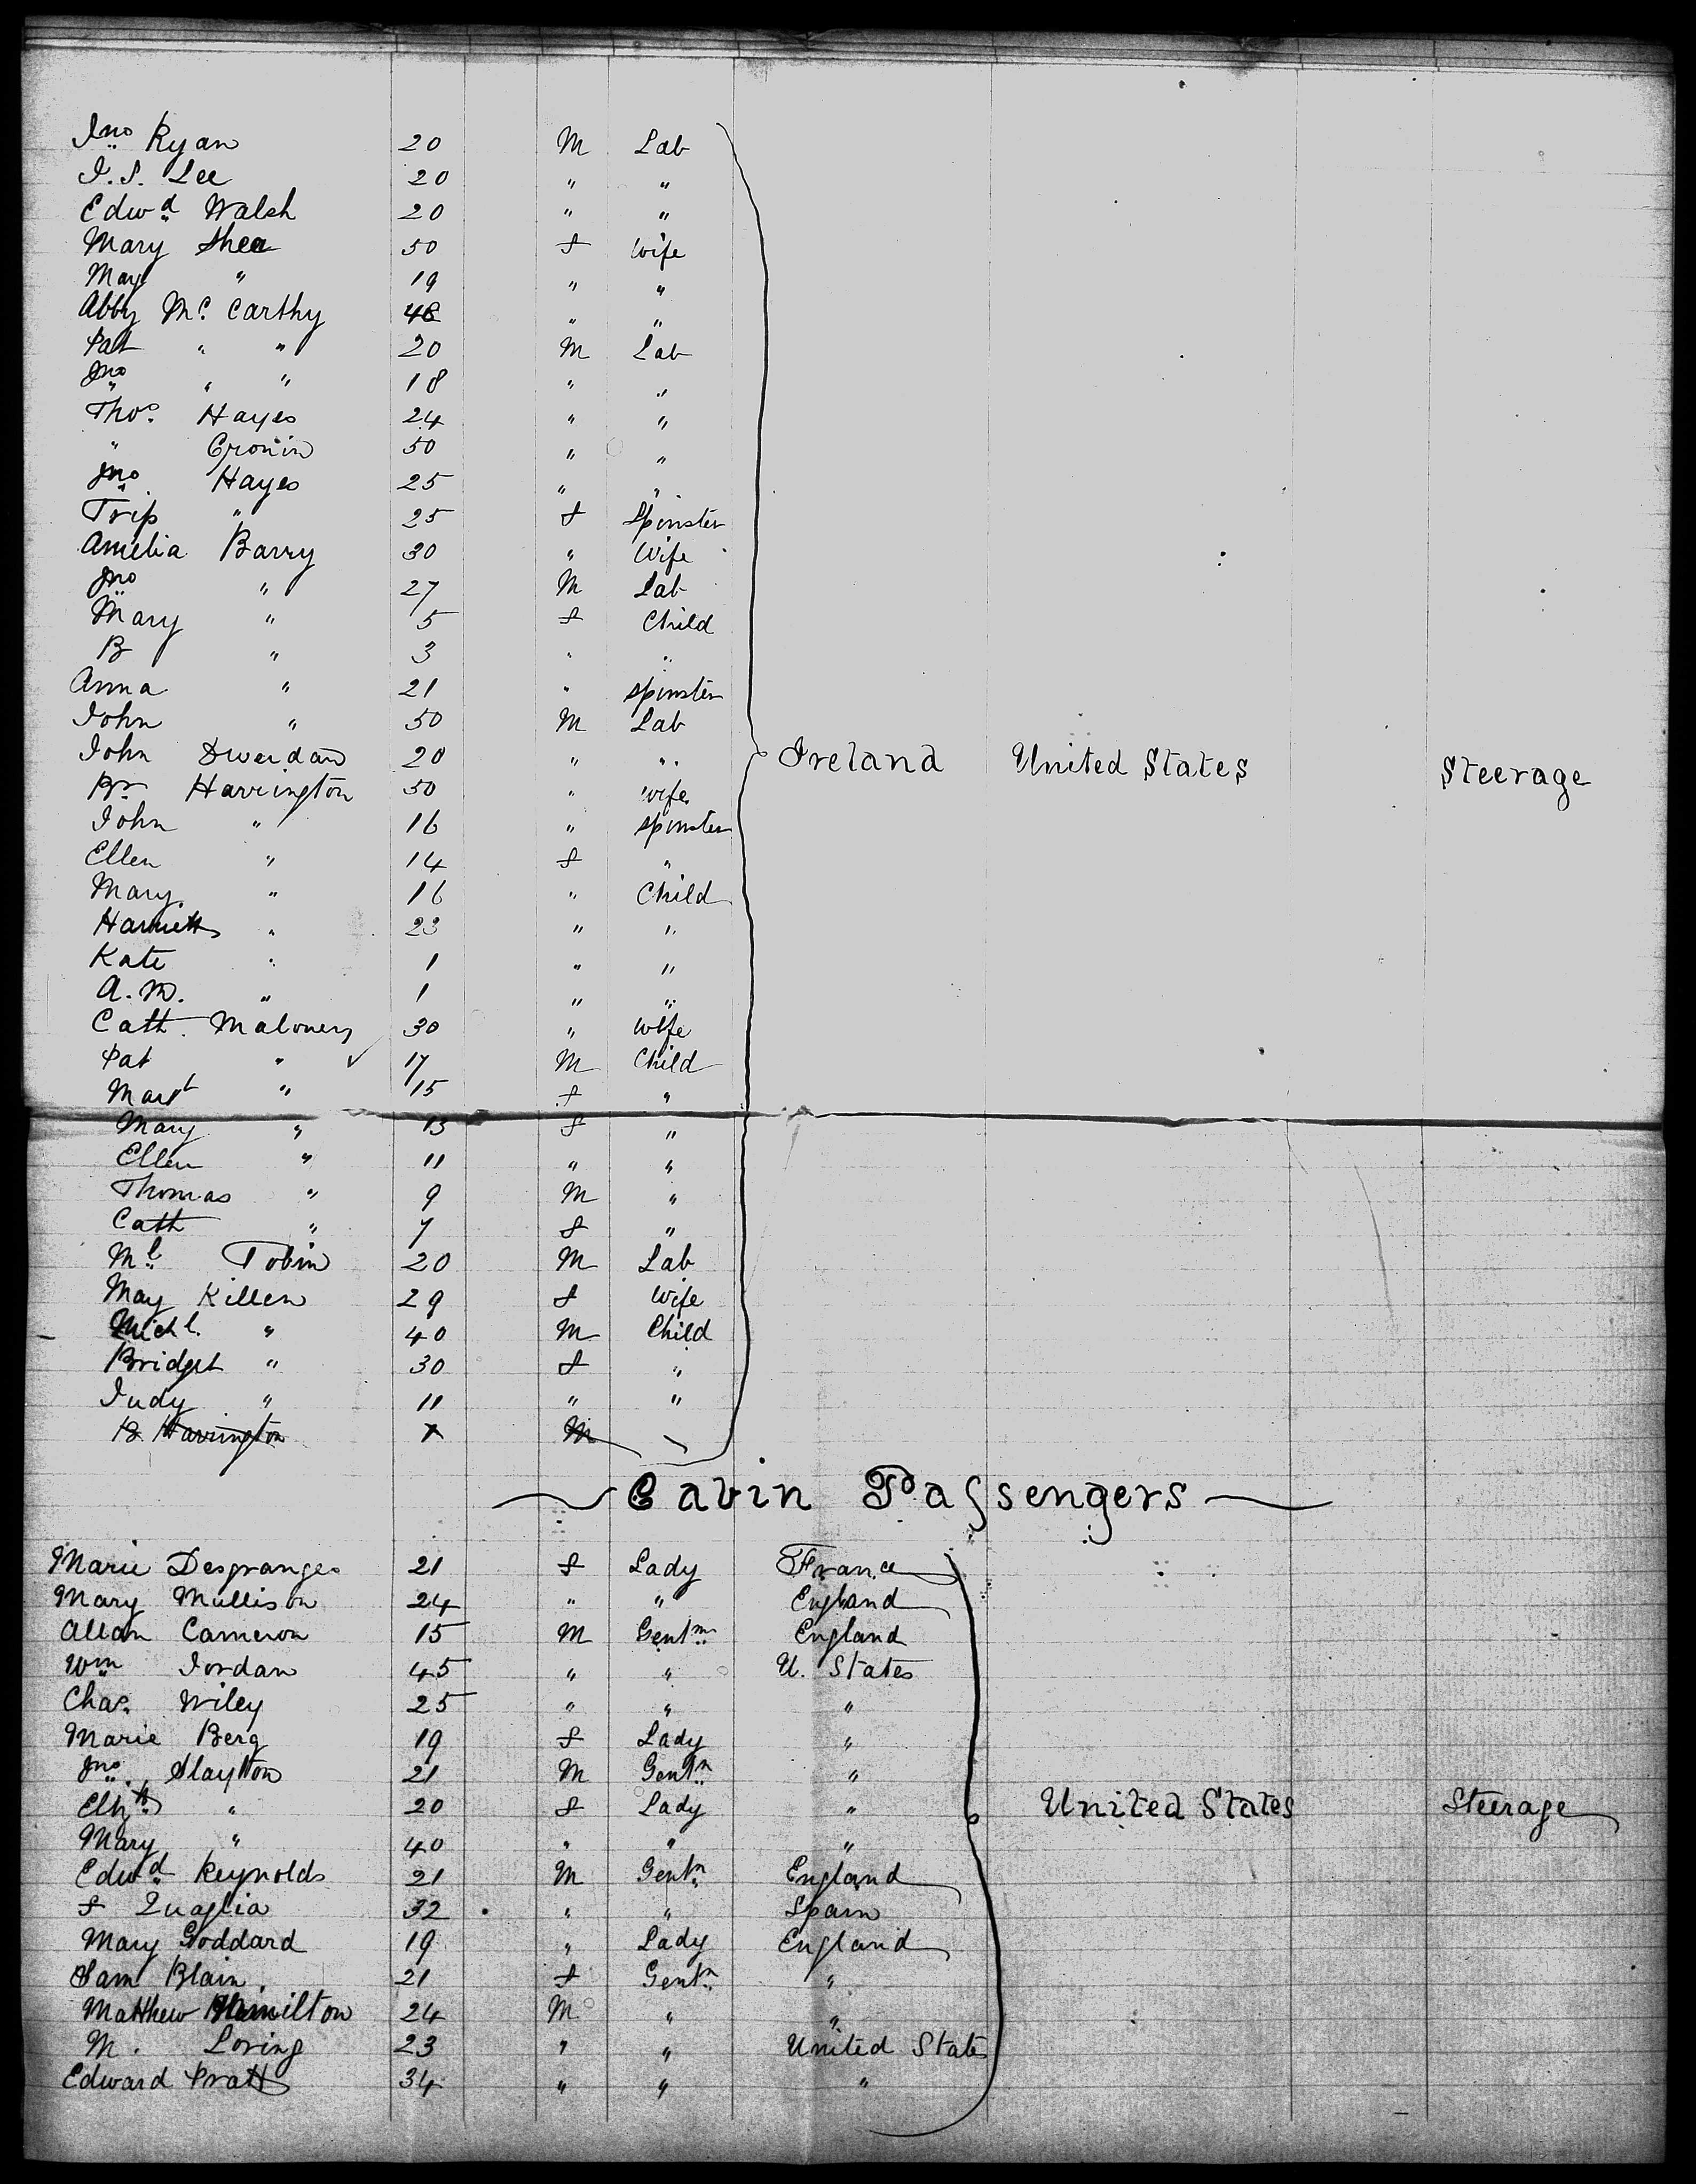 Jno Ryan 20 M Lab
J. S. Lee 20 " "
Edwd Walsh 20 " "
Mary Shea 50 f Wife
May " 19 " "
Abby Mc Carthy 48 " "
Pat " " 20 M Lab
Jno " " 18 " "
Thos. Hayes 24 " "
" Cronin 50 " "
Jno Hayes 25 " "
Trip " 25 f Spinster
Amelia Barry 30 " Wife
Jno " 27 M Lab
Mary " 5 f Child
B " 3 " "
Anna " 21 " spinster
John " 50 M Lab
John 20 " " Ireland United States Steerage
Br Harrington 50 " wife
John " 16 " spinster
Ellen " 14 f "
Mary " 16 " Child
" 23 " "
Kate " 1 " "
A. M. " 1 " "
Cath. Maloney 30 " wife
Pat " 17 M Child
Mart " 15 f "
Mary " 13 f "
Ellen " 11 " "
Thomas " 9 M "
Cath " 7 f "
Ml Tobin 20 M Lab
May Killen 29 f Wife
Michl. " 40 M Child
Bridget " 30 f "
Judy " 11 " "
B Harrington M
Cabin Passengers
Marie Desgranges 21 f Lady France
Mary Mullison 24 " " England
Allan Cameron 15 M Gentm England
Wm Jordan 45 " " U. States
Chas. Wiley 25 " " "
Marie Berg 19 f Lady "
Jno. Slayton 21 M Gentn "
Elizth " 20 f Lady " United States Steerage
Mary " 40 " " "
Edwd Reynolds 21 M Gentn England
f Quaglia 32 " " Spain
Mary Goddard 19 " Lady England
Sam Blain 21 f Gentn "
Matthew Hamilton 24 M " "
M. Loring 23 " " United States
Edward Pratt 34 " " "